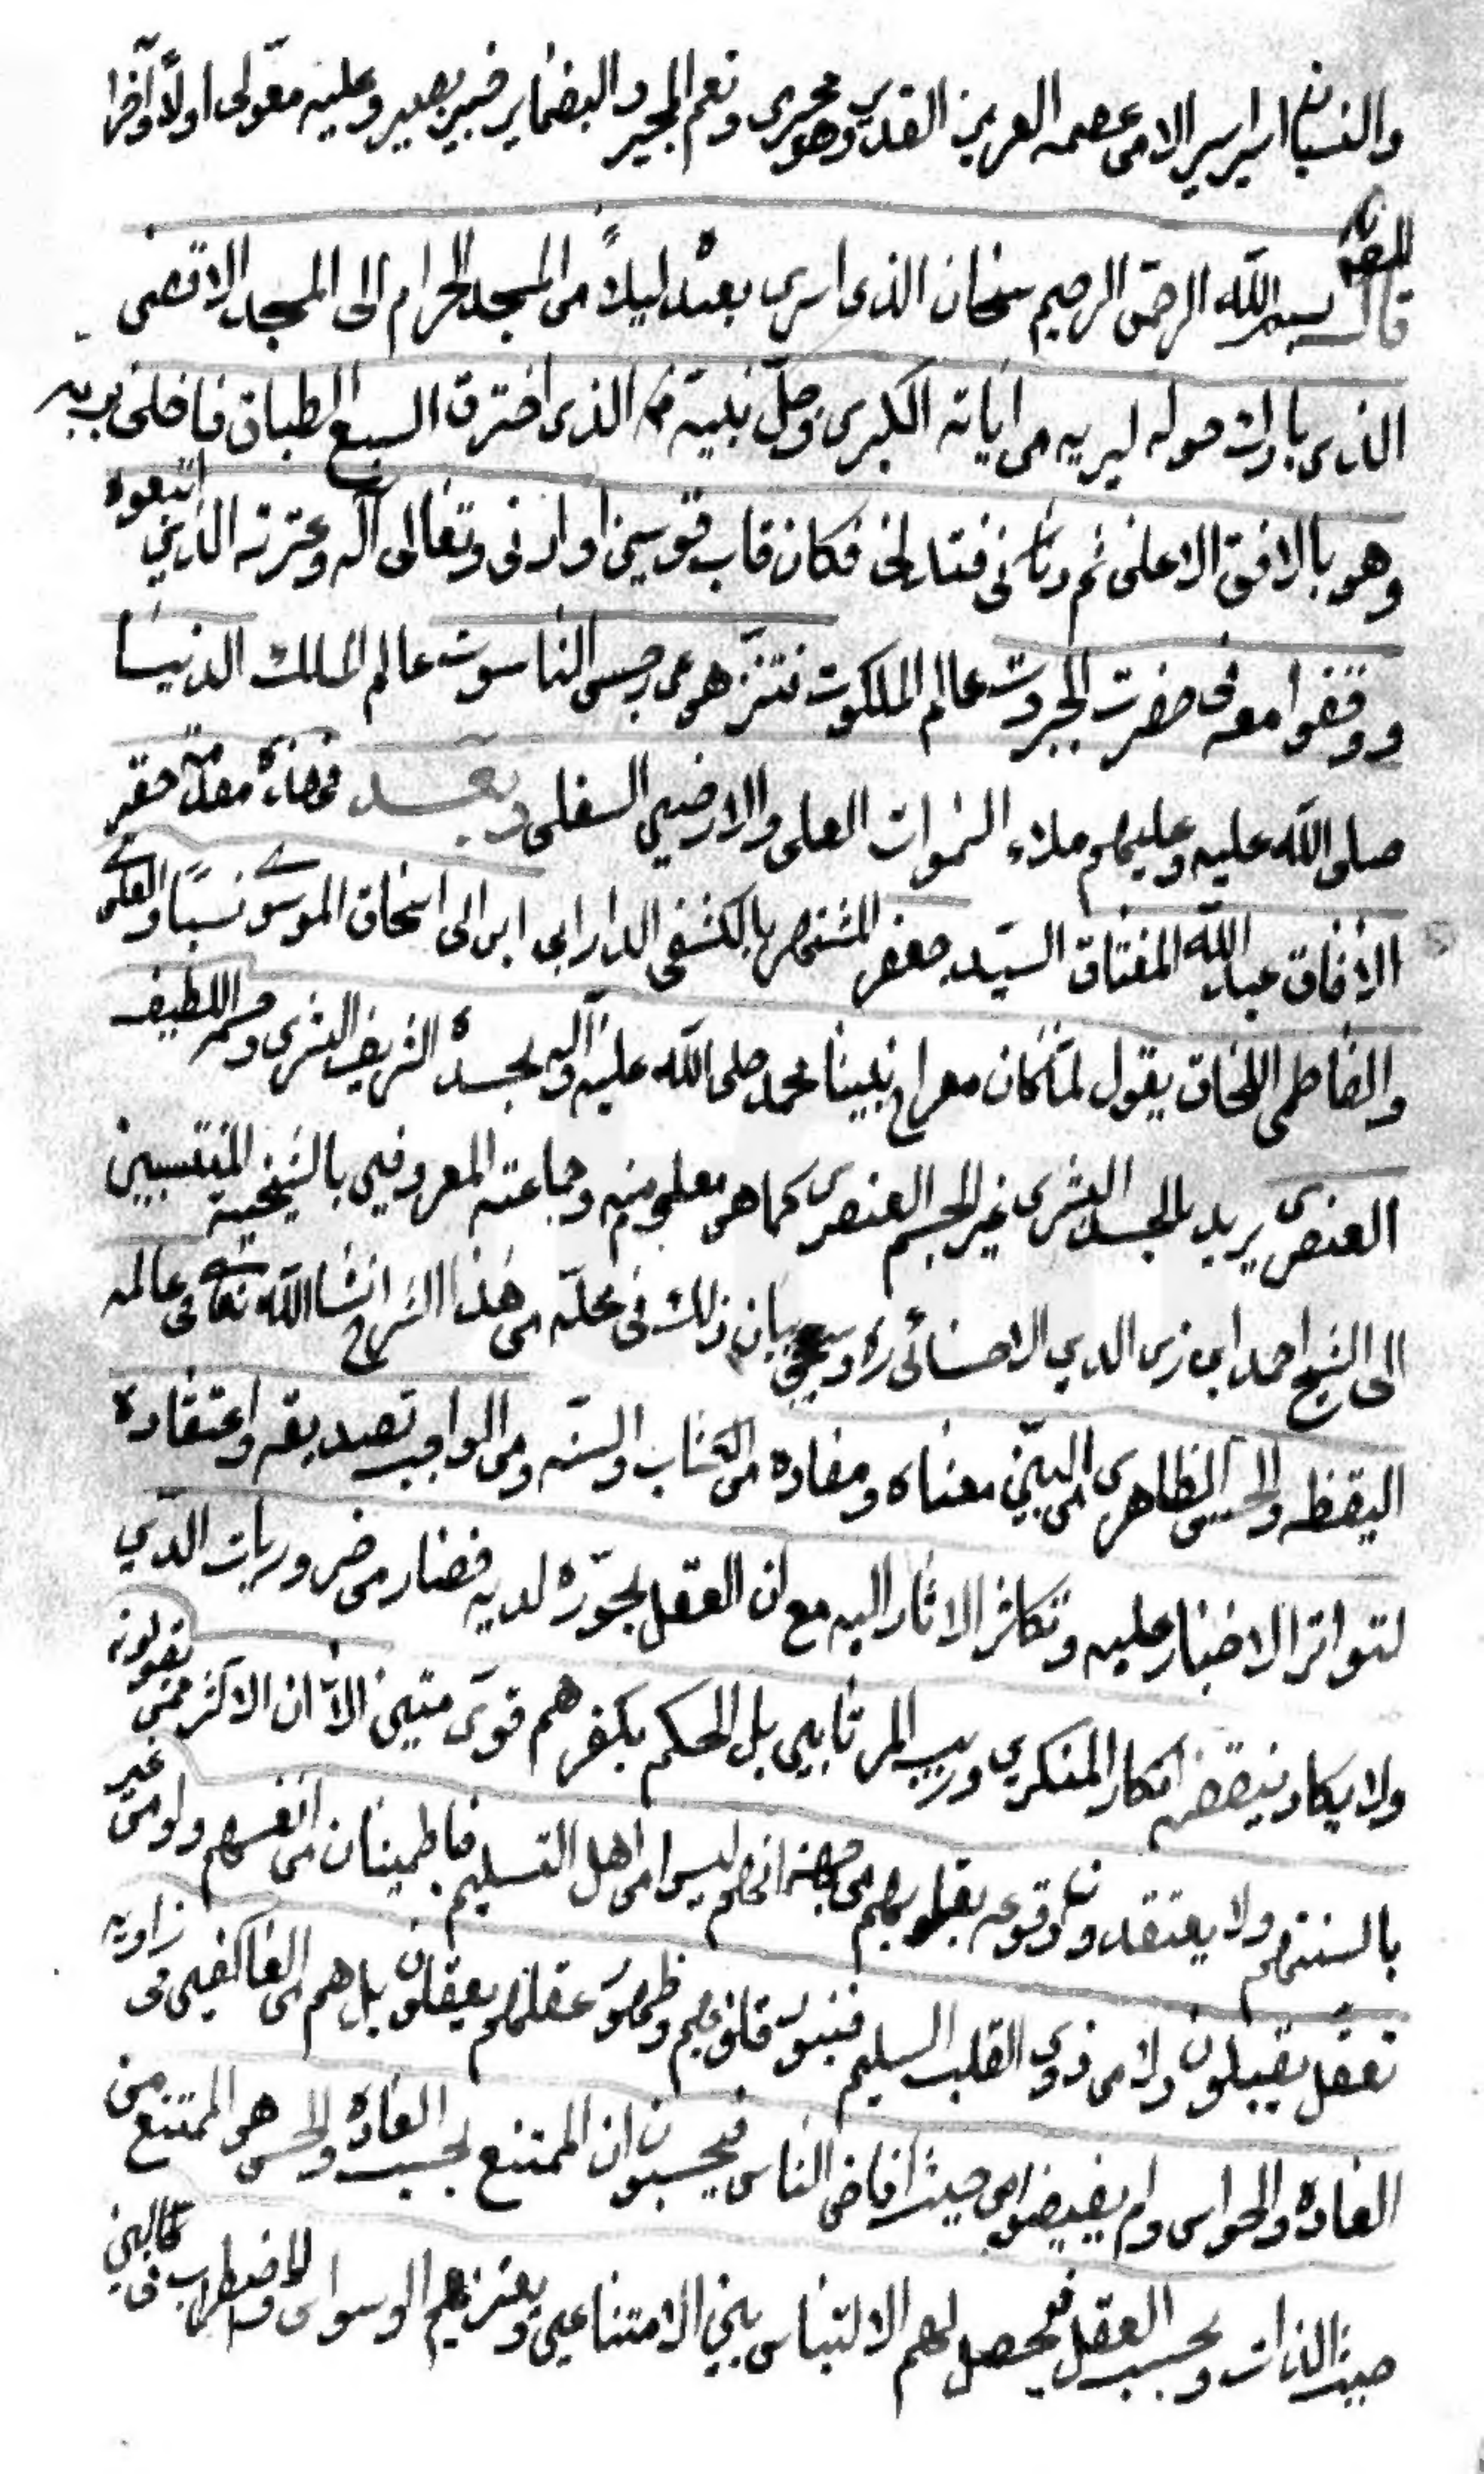 والنسيان اسير اسير الامن عصمه العزيز القدير وهو مجيرى ونعم المجير والبضماير خبير بصير وعليه معوّلى اولاً وآخراً
قال المصنّف بسم اللّه الرحمن الرحيم سبحان الذى اسرى بعبده ليلاً من المسجد الحرام الى المسجد الاقصى
الذى باركت حوله ليريه من اياته الكبرى وجلّ نبيّه الذى اخترق السبع الطباق فاختلى بربه
وهو بالافق الاعلى ثم دنى فتدلى فكان قاب قوسين او ادنى وتعالى آله وعترته الذين اتبعوه
ووقفوا معه فى حضرت الجبروت عالم الملكوت تنزّهوا عن رجس الناسوت عالم الملك الدنيا
صلى اللّه عليه وعليهم ملاء السموات العلى والارضين السفلى وبعد حقير
الافاق عبد اللّه المفتاق السيّد جعفر المشتهر بالكشفى الدارابى ابن ابى اسحاق الموسوى نسباً والعلى
والفاطمى اللحاق يقول لمّا كان معراج نبينا محمد صلى اللّه عليه وآله بجسده الشريف البشرى وجسمه اللطيف
العنصرى يريد بالجسد البشرى غير الجسم العنصرى كما هو معلوم منه وجماعته المعروفين بالشيخية المنتسبين
الى الشيخ احمد ابن زين الدين الاحسائى ره وسيجئ بيان ذلك فى محلّه من هذا الشرح انشا اللّه تعالى فى عالم
اليقظه والحسّ الظاهرى من البيّن معناه ومفاده من الكتاب والسنّه ومن الواجب تصديقه واعتقاده
لتواتر الاخبار عليه وتكاثر الاثار اليه مع ان العقل يجوّزه لديه فصار من ضروريات الدّين
ولا يكاد ينقضه انكار المنكرين وريب المرتابين بل الحكم بكفرهم قوىّ متين الاّ ان الاكثر ممّن يقولونه
بالسنتهم ولا يعتقدون وقوعه بقلوبهم من جهة انهم ليسوا من اهل التسليم فاطمينان من انفسهم ولو من غير
تعقل يقبلون ولا من ذوى القلب السليم فبنور قلوبهم وظهور عقلهم يعقلون بل هم من العاكفين فى زاويه
العاده والحواس ولم يفيضوا من حيث افاض الناس فيحسبون ان الممتنع بحسب العاده والحس هو الممتنع من
حيث الذات وبحسب العقل فيحصل لهم الالتباس بين الامتناعين ويعتريهم الوسواس والاضطراب فى البين